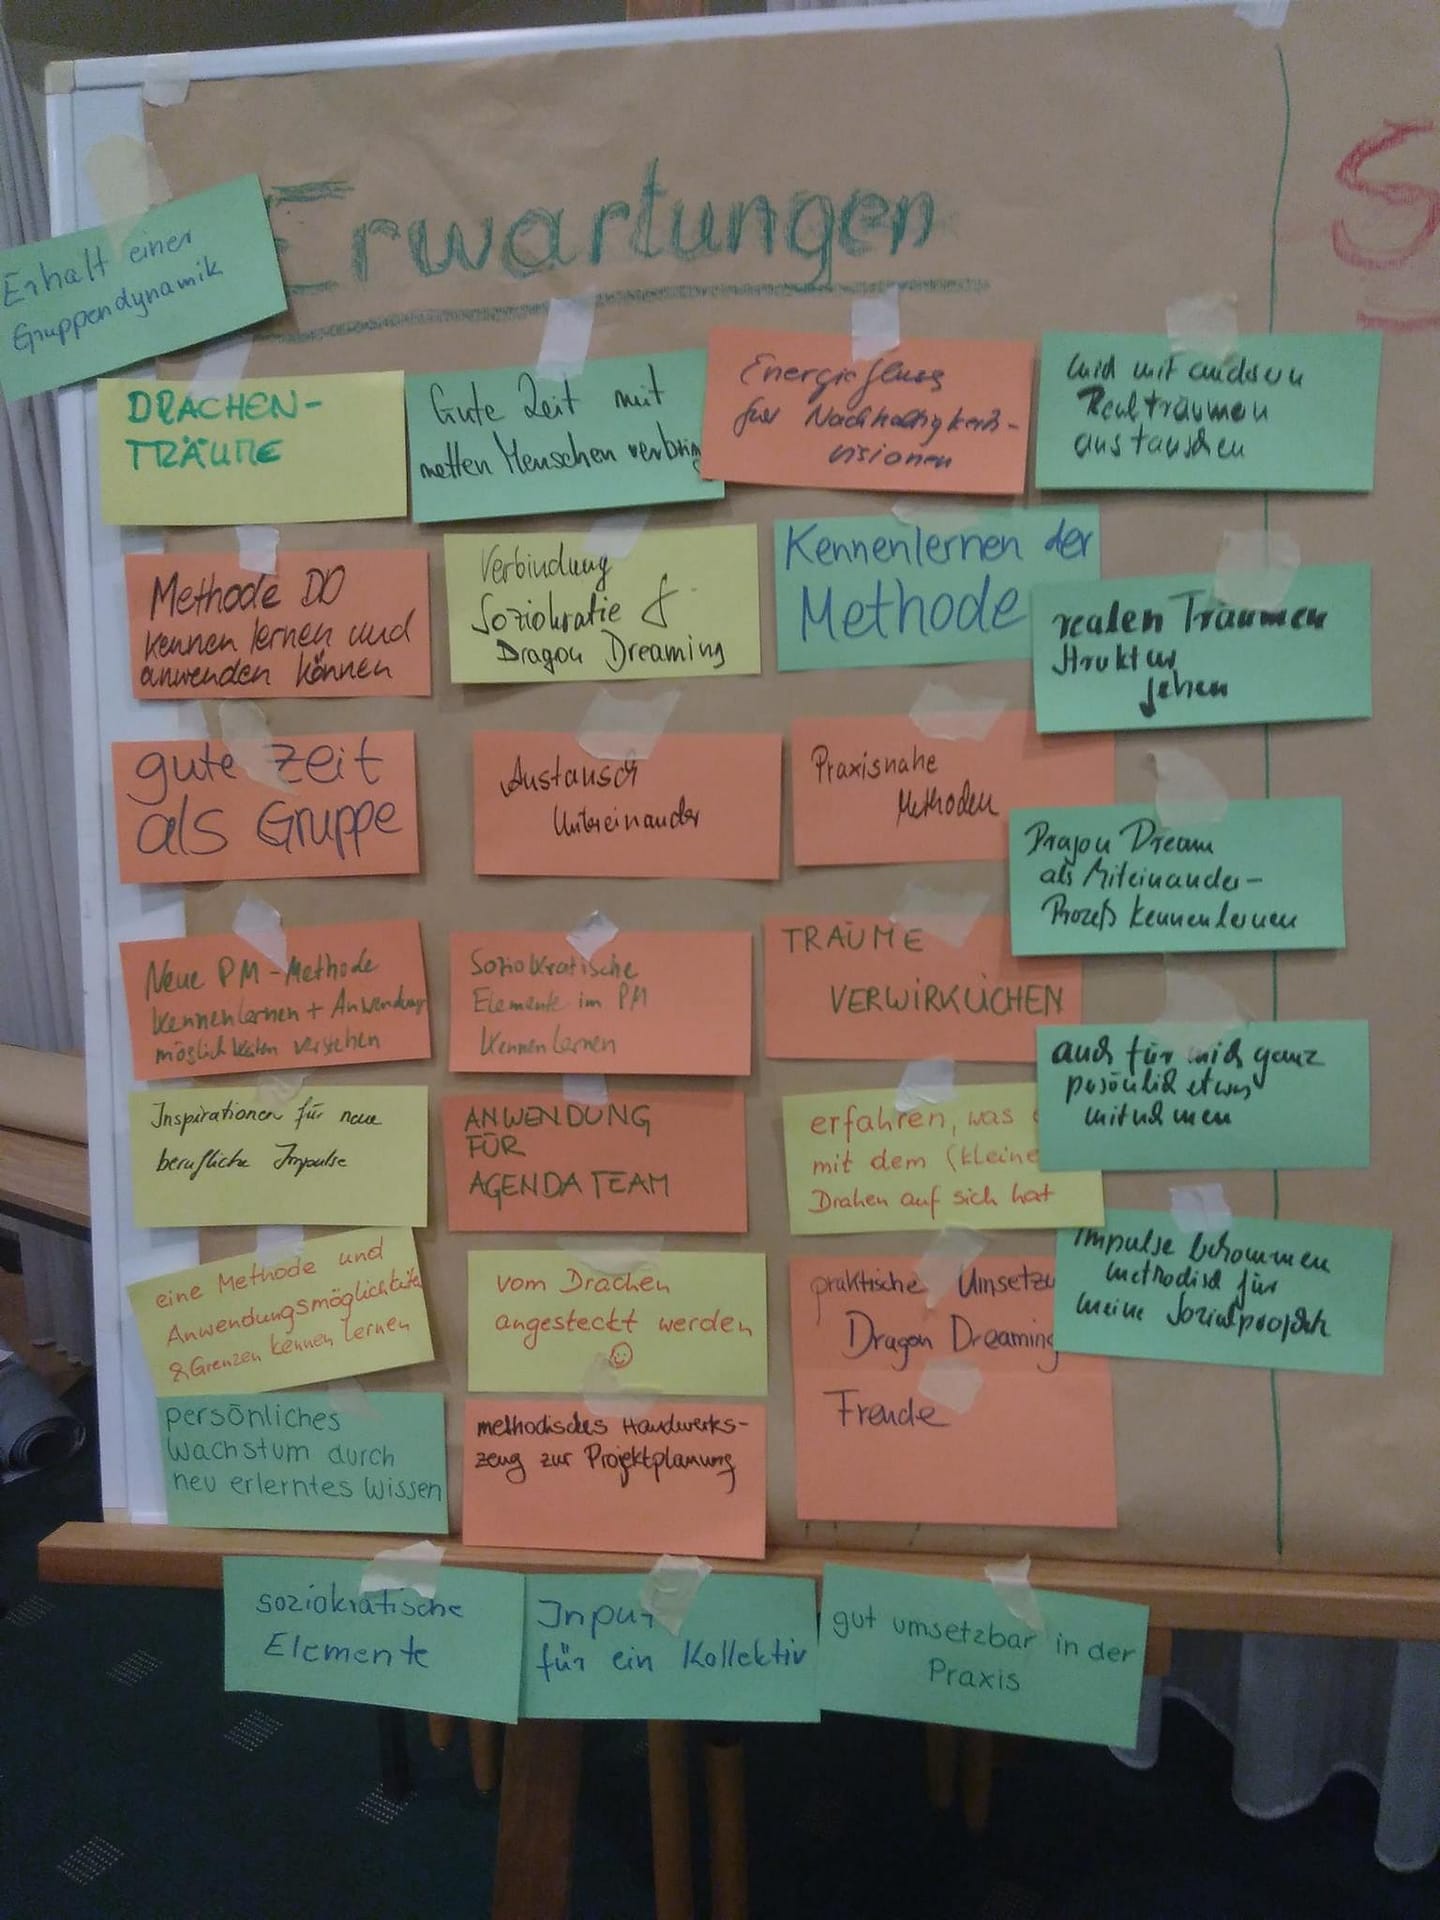 Erwartungen
S
Erhalt einer
Gruppendynamik
DRACHEN-
TRÄUME
Gute Zeit mit
netten Menschen verbrin
Energiefluss
für Nachhaltigkeits-
visionen
mich mit anderen
Realträumen
austauschen
Methode DD
kennen lernen und
anwenden können
Verbindung
Soziokratie &
Dragon Dreaming
Kennenlernen der
Methode
realen Träumen
Struktur
geben
gute Zeit
als Gruppe
Austausch
Untereinander
Praxisnahe
Methoden
Dragon Dream
als Miteinander-
Prozeß kennenlernen
Neue PM-Methode
kennenlernen + Anwendungs
möglichkeiten verstehen
Soziokratische
Elemente im PM
kennenlernen
TRÄUME
VERWIRKLICHEN
auch für mich ganz
persönlich etwas
mitnehmen
Inspirationen für neue
berufliche Impulse
ANWENDUNG
FÜR
AGENDA TEAM
erfahren, was e
mit dem (kleine
Drahen auf sich hat
Impulse bekommen
methodisch für
meine Sozialprojekte
eine Methode und
Anwendungsmöglichkeiten
& Grenzen kennen lernen
vom Drachen
angesteckt werden
praktische Umsetzu
Dragon Dreaming
persönliches
Wachstum durch
neu erlerntes Wissen
methodisches Handwerks-
zeug zur Projektplanung
Freude
soziokratische
Elemente
Input
für ein Kollektiv
gut umsetzbar in der
Praxis